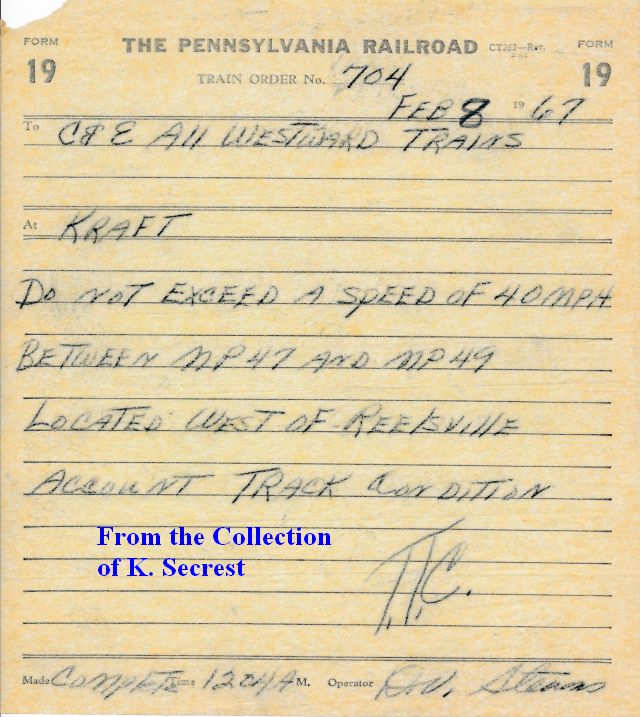 FORM 19 THE PENNSYLVANIA RAILROAD CT262—Rev. FORM 19
TRAIN ORDER No. 704
FEB 8 19 67
To C&E All WESTWARD TRAINS
At KRAFT
DO NOT EXCEED A SPEED OF 40 MPH
BETWEEN MP 47 AND MP 49
LOCATED WEST OF REELSVILLE
ACCOUNT TRACK CONDITION
From the Collection
of K. Secrest
T.T.C.
Made COMPETE Time 1204A M. Operator D.V.